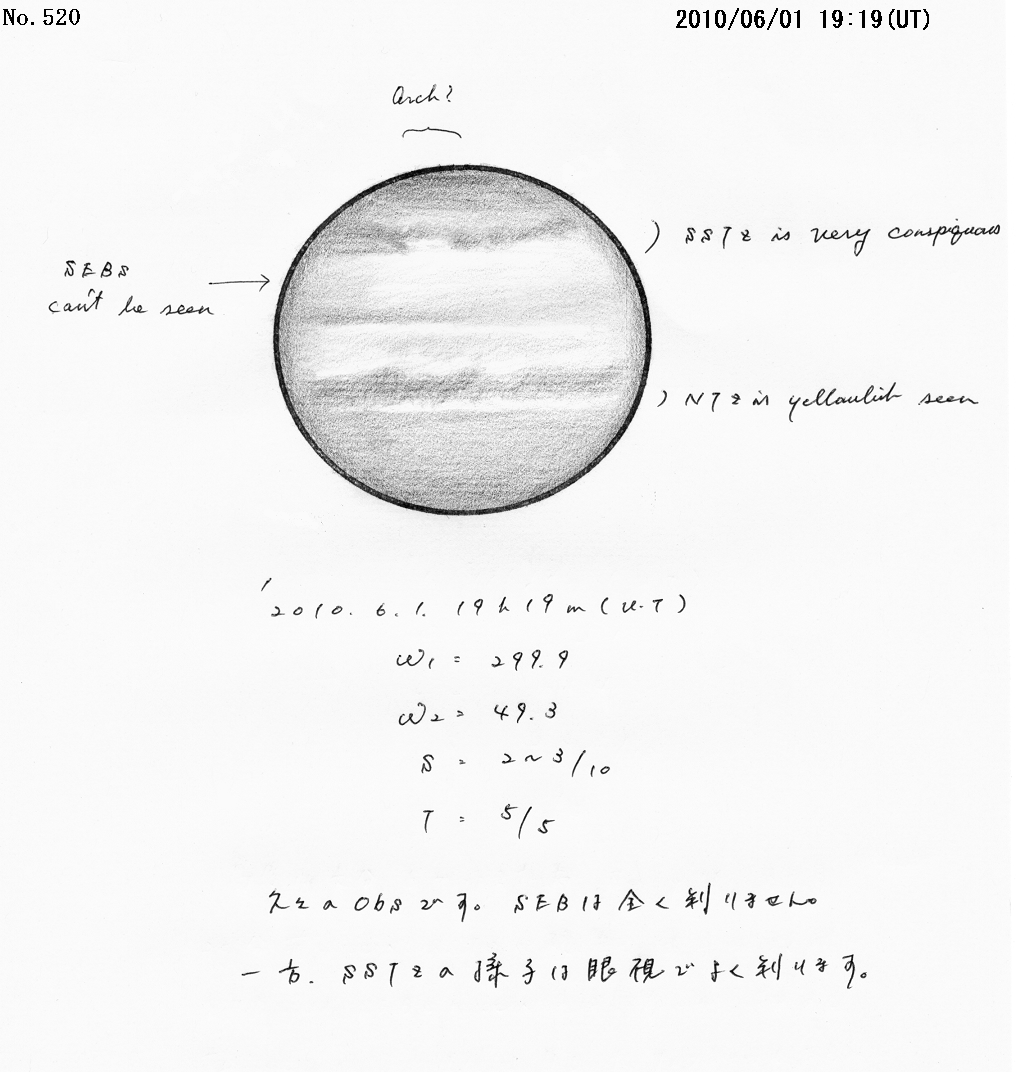 No.520
2010/06/01 19:19(UT)
Arch?
) SSTz is very conspiquous
SEBS
can't be seen
) NTz is yellowlish seen
'2010. 6. 1. 19h19m (U.T)
ω1 = 299.9
ω2 = 49.3
S = 2~3/10
T = 5/5
久々のObsです。SEBは全く判りません。
一方、SSTzの様子は眼視でよく判ります。